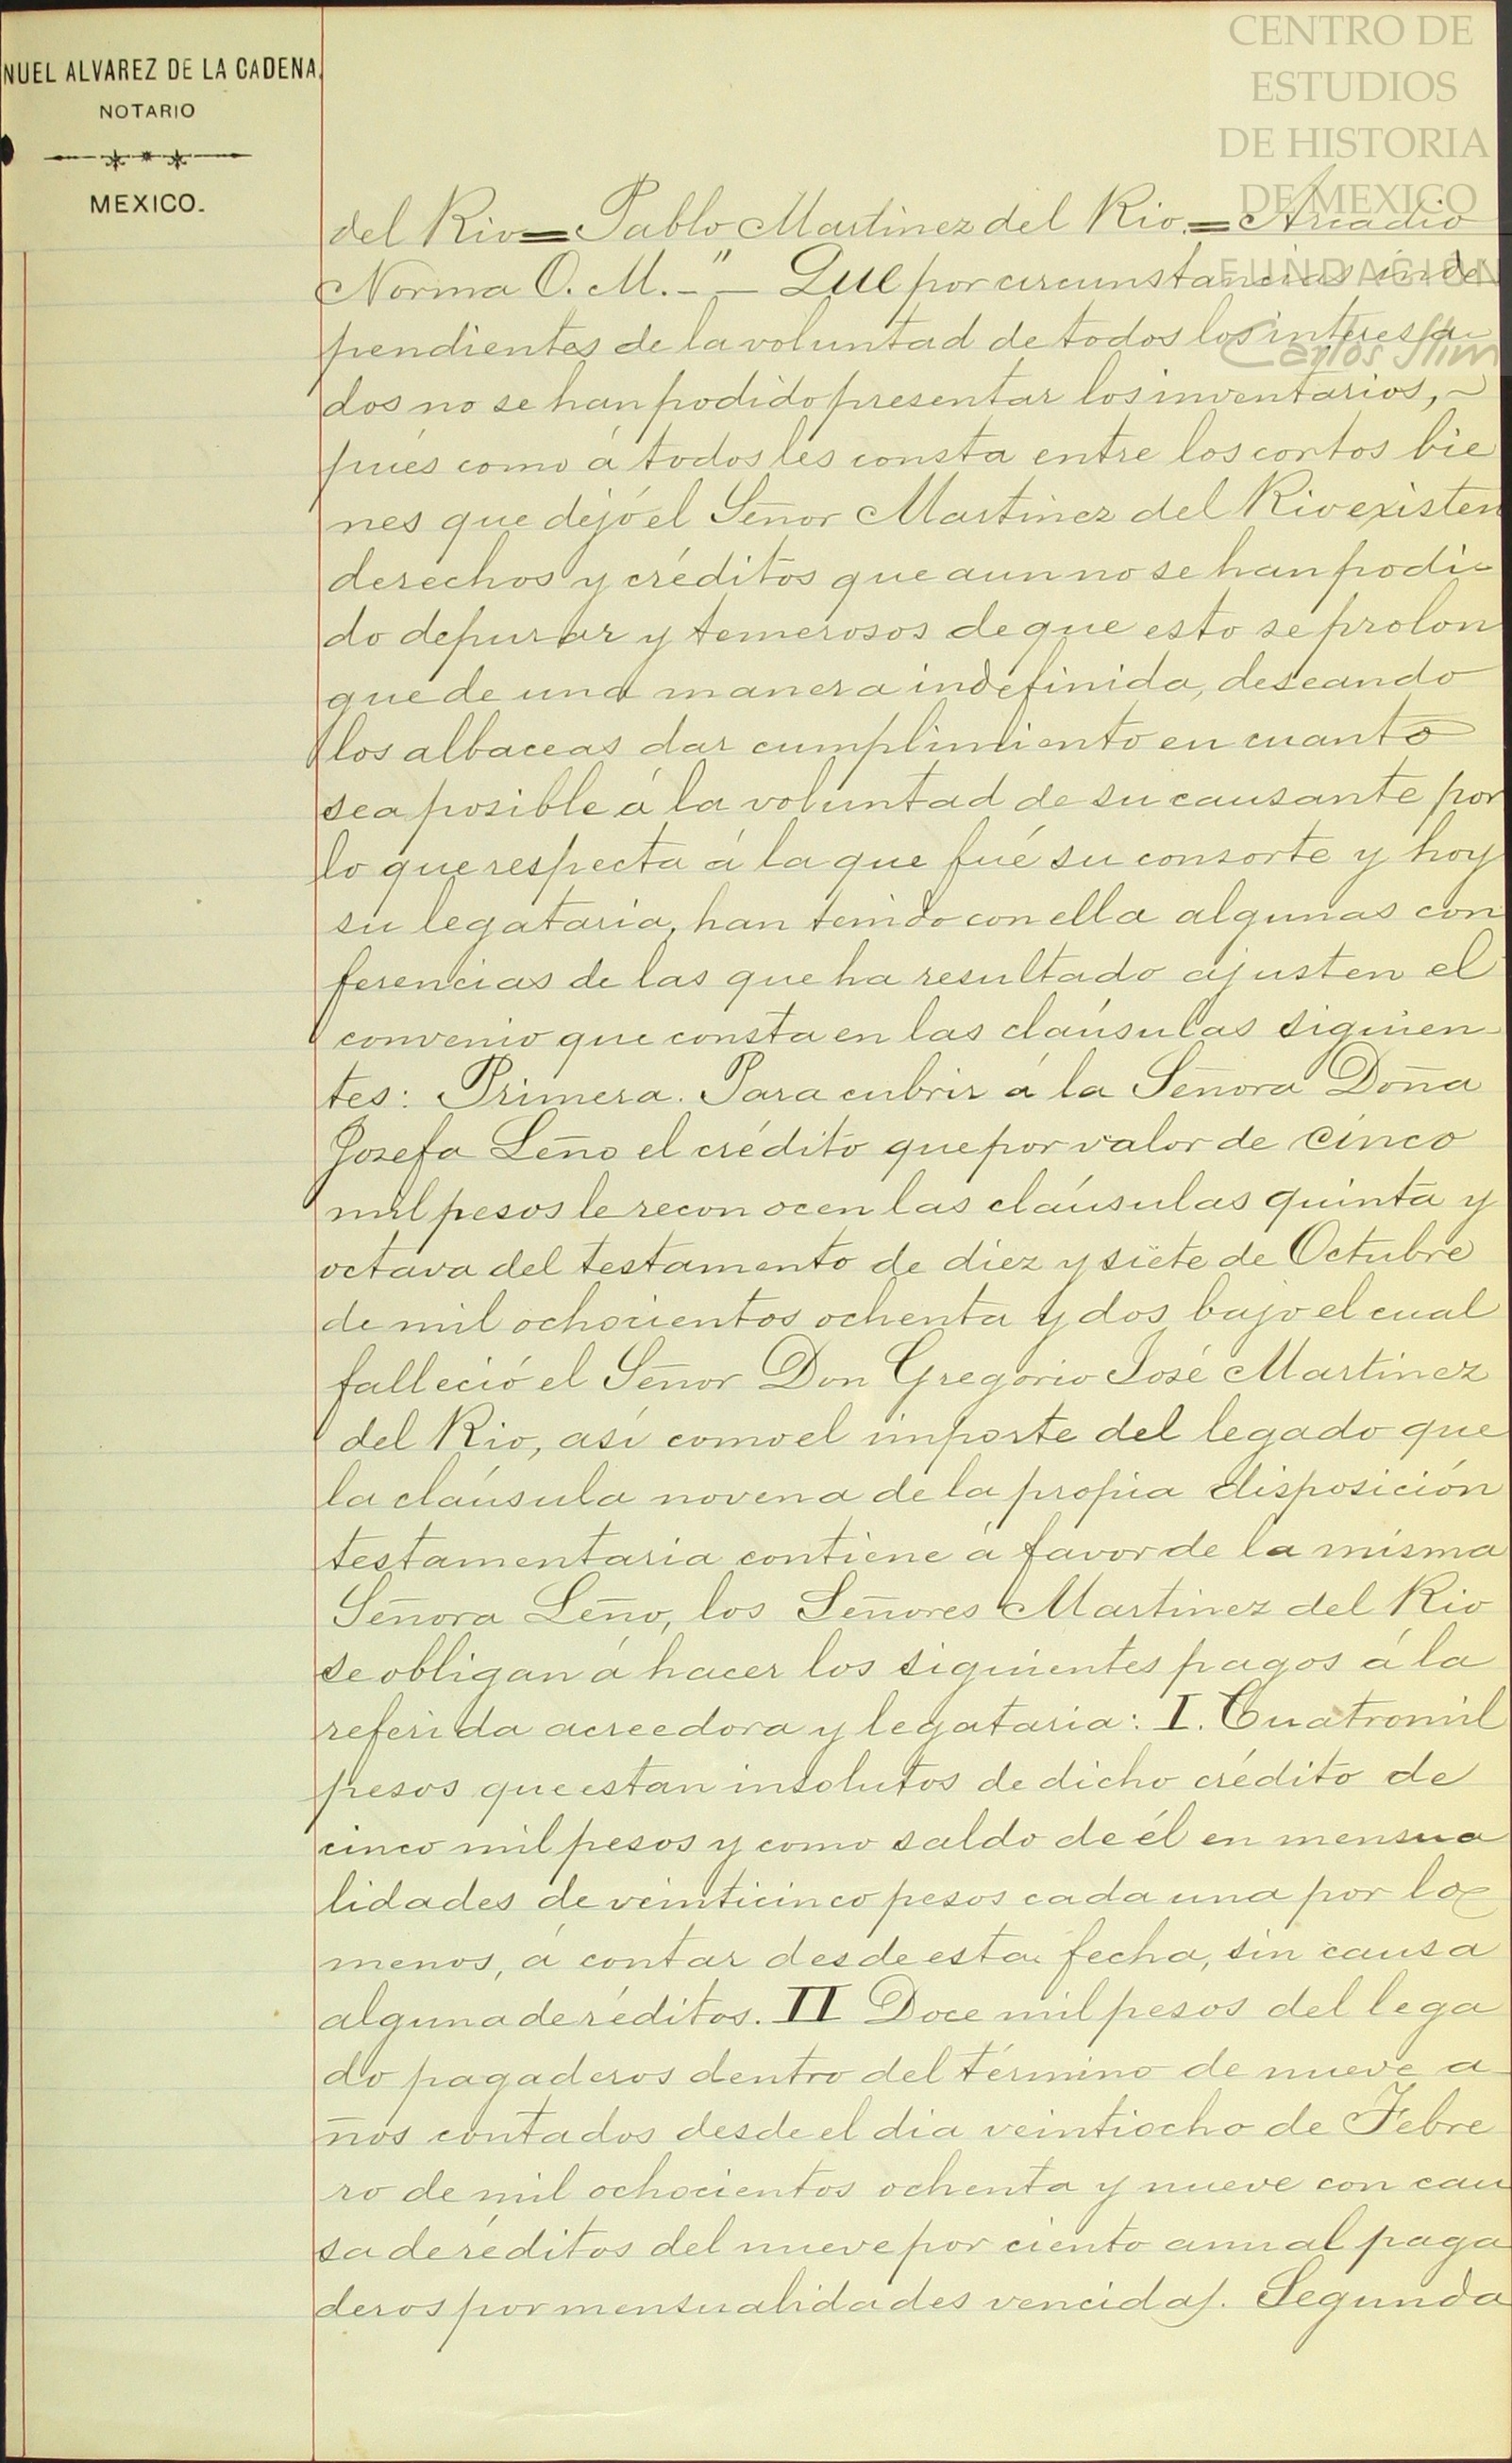 NUEL ALVAREZ DE LA CADENA,
NOTARIO
MEXICO.
CENTRO DE
ESTUDIOS
DE HISTORIA
DE MEXICO
FUNDACIÓN
Carlos Slim
del Rio = Pablo Martinez del Rio. = Arcadio
Norma O. M. - " - Que por circunstancias inde
pendientes de la voluntad de todos los interesa-
dos no se han podido presentar los inventarios, ~
pués como á todos les consta entre los cortos bie
nes que dejó el Señor Martinez del Rio existen
derechos y créditos que aun no se han podi-
do depurar y temerosos de que esto se prolon
gue de una manera indefinida, deseando
los albaceas dar cumplimiento en cuanto
sea posible á la voluntad de su causante por
lo que respecta á la que fué su consorte y hoy
su legataria, han tenido con ella algunas con
ferencias de las que ha resultado ajusten el
convenio que consta en las claúsulas siguien-
tes: Primera. Para cubrir á la Señora Doña
Josefa Leño el crédito que por valor de cinco
mil pesos le reconocen las claúsulas quinta y
octava del testamento de diez y siete de Octubre
de mil ochocientos ochenta y dos bajo el cual
falleció el Señor Don Gregorio José Martinez
del Rio, así como el importe del legado que
la claúsula novena de la propia disposición
testamentaria contiene á favor de la misma
Señora Leño, los Señores Martinez del Rio
se obligan á hacer los siguientes pagos á la
referida acreedora y legataria: I. Cuatro mil
pesos que estan insolutos de dicho crédito de
cinco mil pesos y como saldo de él en mensua
lidades de veinticinco pesos cada una por lo
menos, á contar desde esta fecha, sin causa
alguna de réditos. II Doce mil pesos del lega
do pagaderos dentro del término de nueve a-
ños contados desde el dia veintiocho de Febre
ro de mil ochocientos ochenta y nueve con cau
sa de réditos del nueve por ciento anual paga
deros por mensualidades vencidas. Segunda